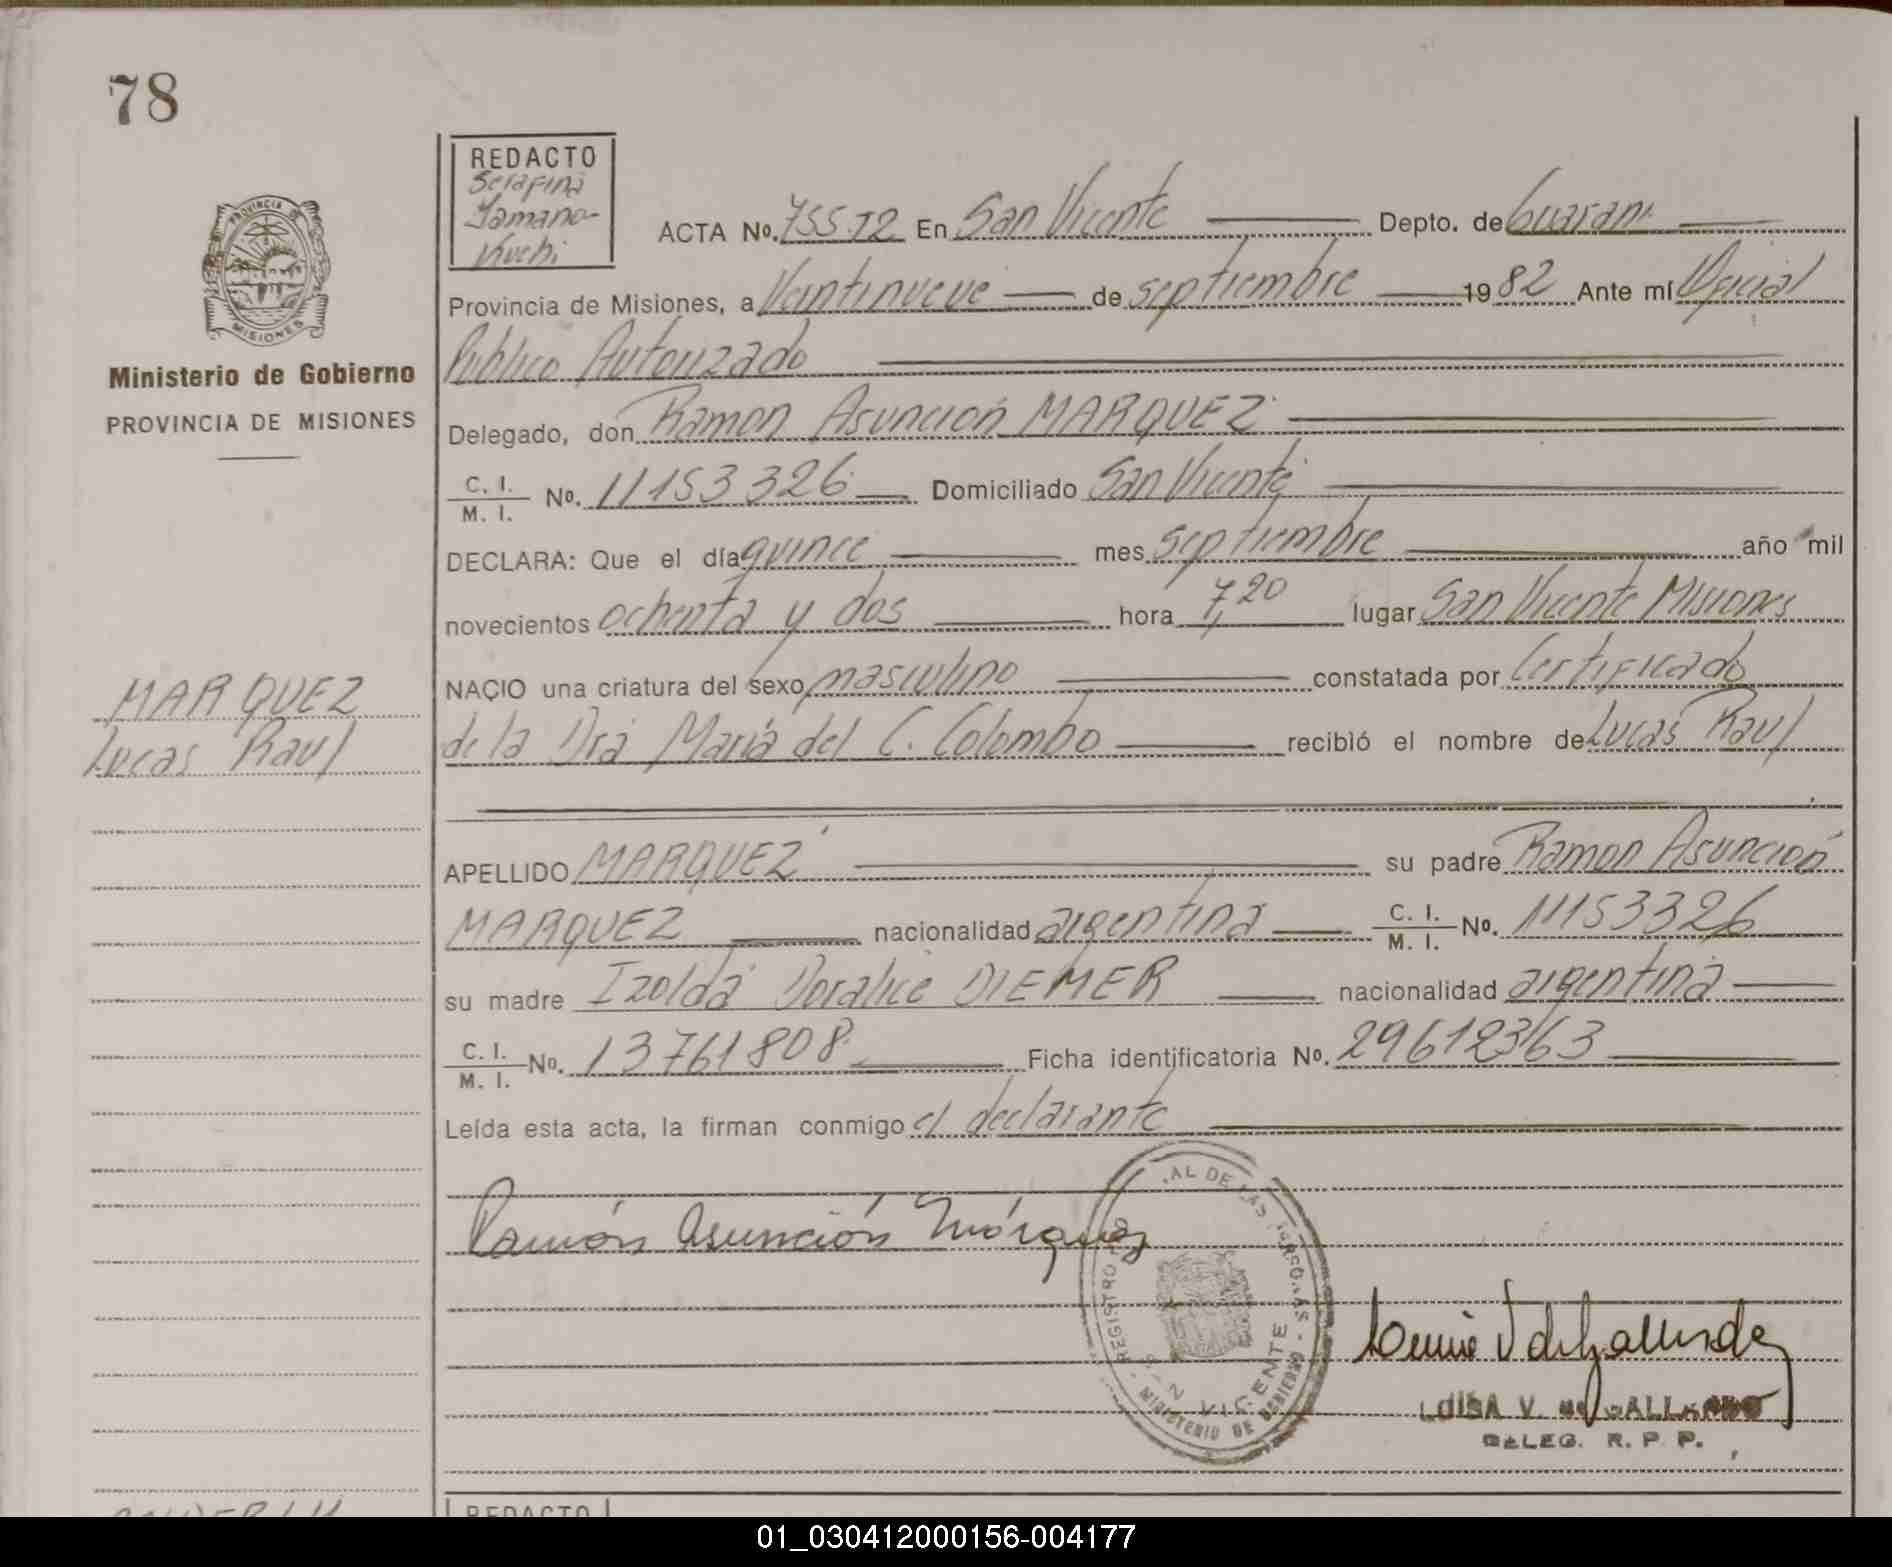 78
REDACTO
Serafina
Yamano-
Kuchi
ACTA No. 755 T2 En San Vicente Depto. de Guarani
Provincia de Misiones, a Veintinueve de septiembre 1982 Ante mí Oficial
Publico Autorizado
PROVINCIA DE
MISIONES
Ministerio de Gobierno
PROVINCIA DE MISIONES
Delegado, don Ramon Asunción MARQUEZ
C. I.
M. I. No. 11153326 Domiciliado San Vicente
DECLARA: Que el día quince mes septiembre año mil
novecientos ochenta y dos hora 7,20 lugar San Vicente Misiones
MARQUEZ
Lucas Raul
NACIO una criatura del sexo masculino constatada por Certificado
de la Dra Maria del C. Colombo recibió el nombre de Lucas Raul
APELLIDO MARQUEZ su padre Ramon Asunción
MARQUEZ nacionalidad argentina C. I. M. I. No. 11153326
su madre Izolda Doralice DIEMER nacionalidad argentina
C. I.
M. I. No. 13761808 Ficha identificatoria No. 29612363
Leída esta acta, la firman conmigo el declarante
Ramón Asunción Márquez
REGISTRO AL DE LAS PERSONAS
VICENTE
MINISTERIO DE GOBIERNO
LUISA V. DE GALLARDO
DELEG. R. P. P.
REDACTO
01_030412000156-004177